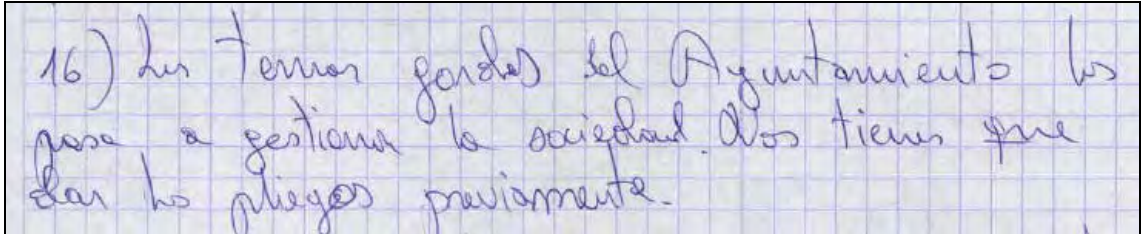 16) Los temas gordos del Ayuntamiento los
pasa a gestionar la sociedad. Nos tienes que
dar los pliegos previamente.